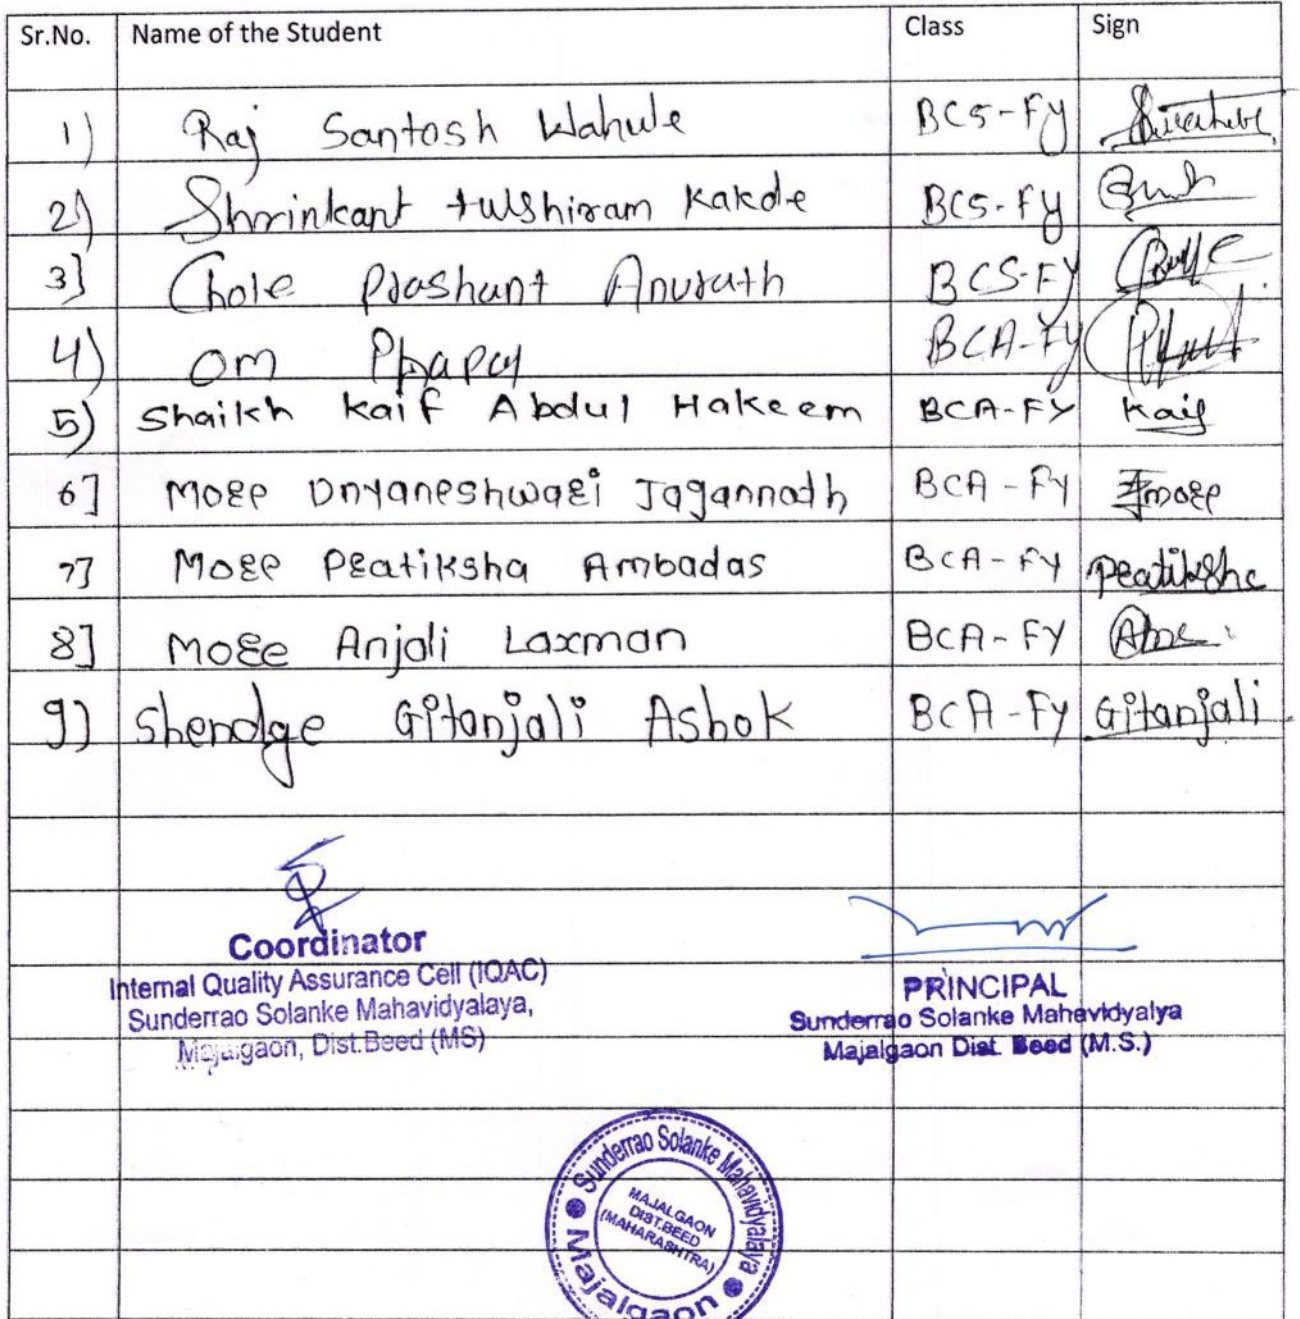 Sr.No. Name of the Student Class Sign
1) Raj Santosh Wahule BCS-FY
2) Shrinkant tulshiram Kakde BCS-FY
3] Chole Prashant Anurath BCS-FY
4) Om BCA-FY
5) Shaikh Kaif Abdul Hakeem BCA-FY Kaif
6] More Dnyaneshwari Jagannath BCA-FY more
7] More Pratiksha Ambadas BCA-FY Pratiksha
8] More Anjali Laxman BCA-FY
9) Shendge Gitanjali Ashok BCA-FY Gitanjali
Coordinator
Internal Quality Assurance Cell (IQAC)
Sunderrao Solanke Mahavidyalaya,
Majalgaon, Dist.Beed (MS)
PRINCIPAL
Sunderrao Solanke Mahavidyalya
Majalgaon Dist. Beed (M.S.)
Sunderrao Solanke Mahavidyalaya
MAJALGAON
DIST.BEED
(MAHARASHTRA)
Majalgaon